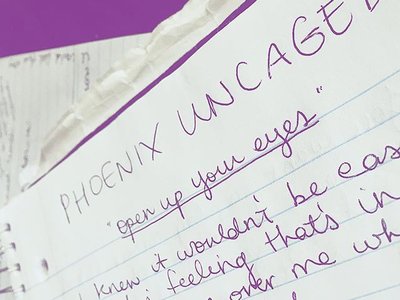 PHOENIX UNCAGED
"open up your eyes"
I knew it wouldn't be eas
feeling that's in
over me wh